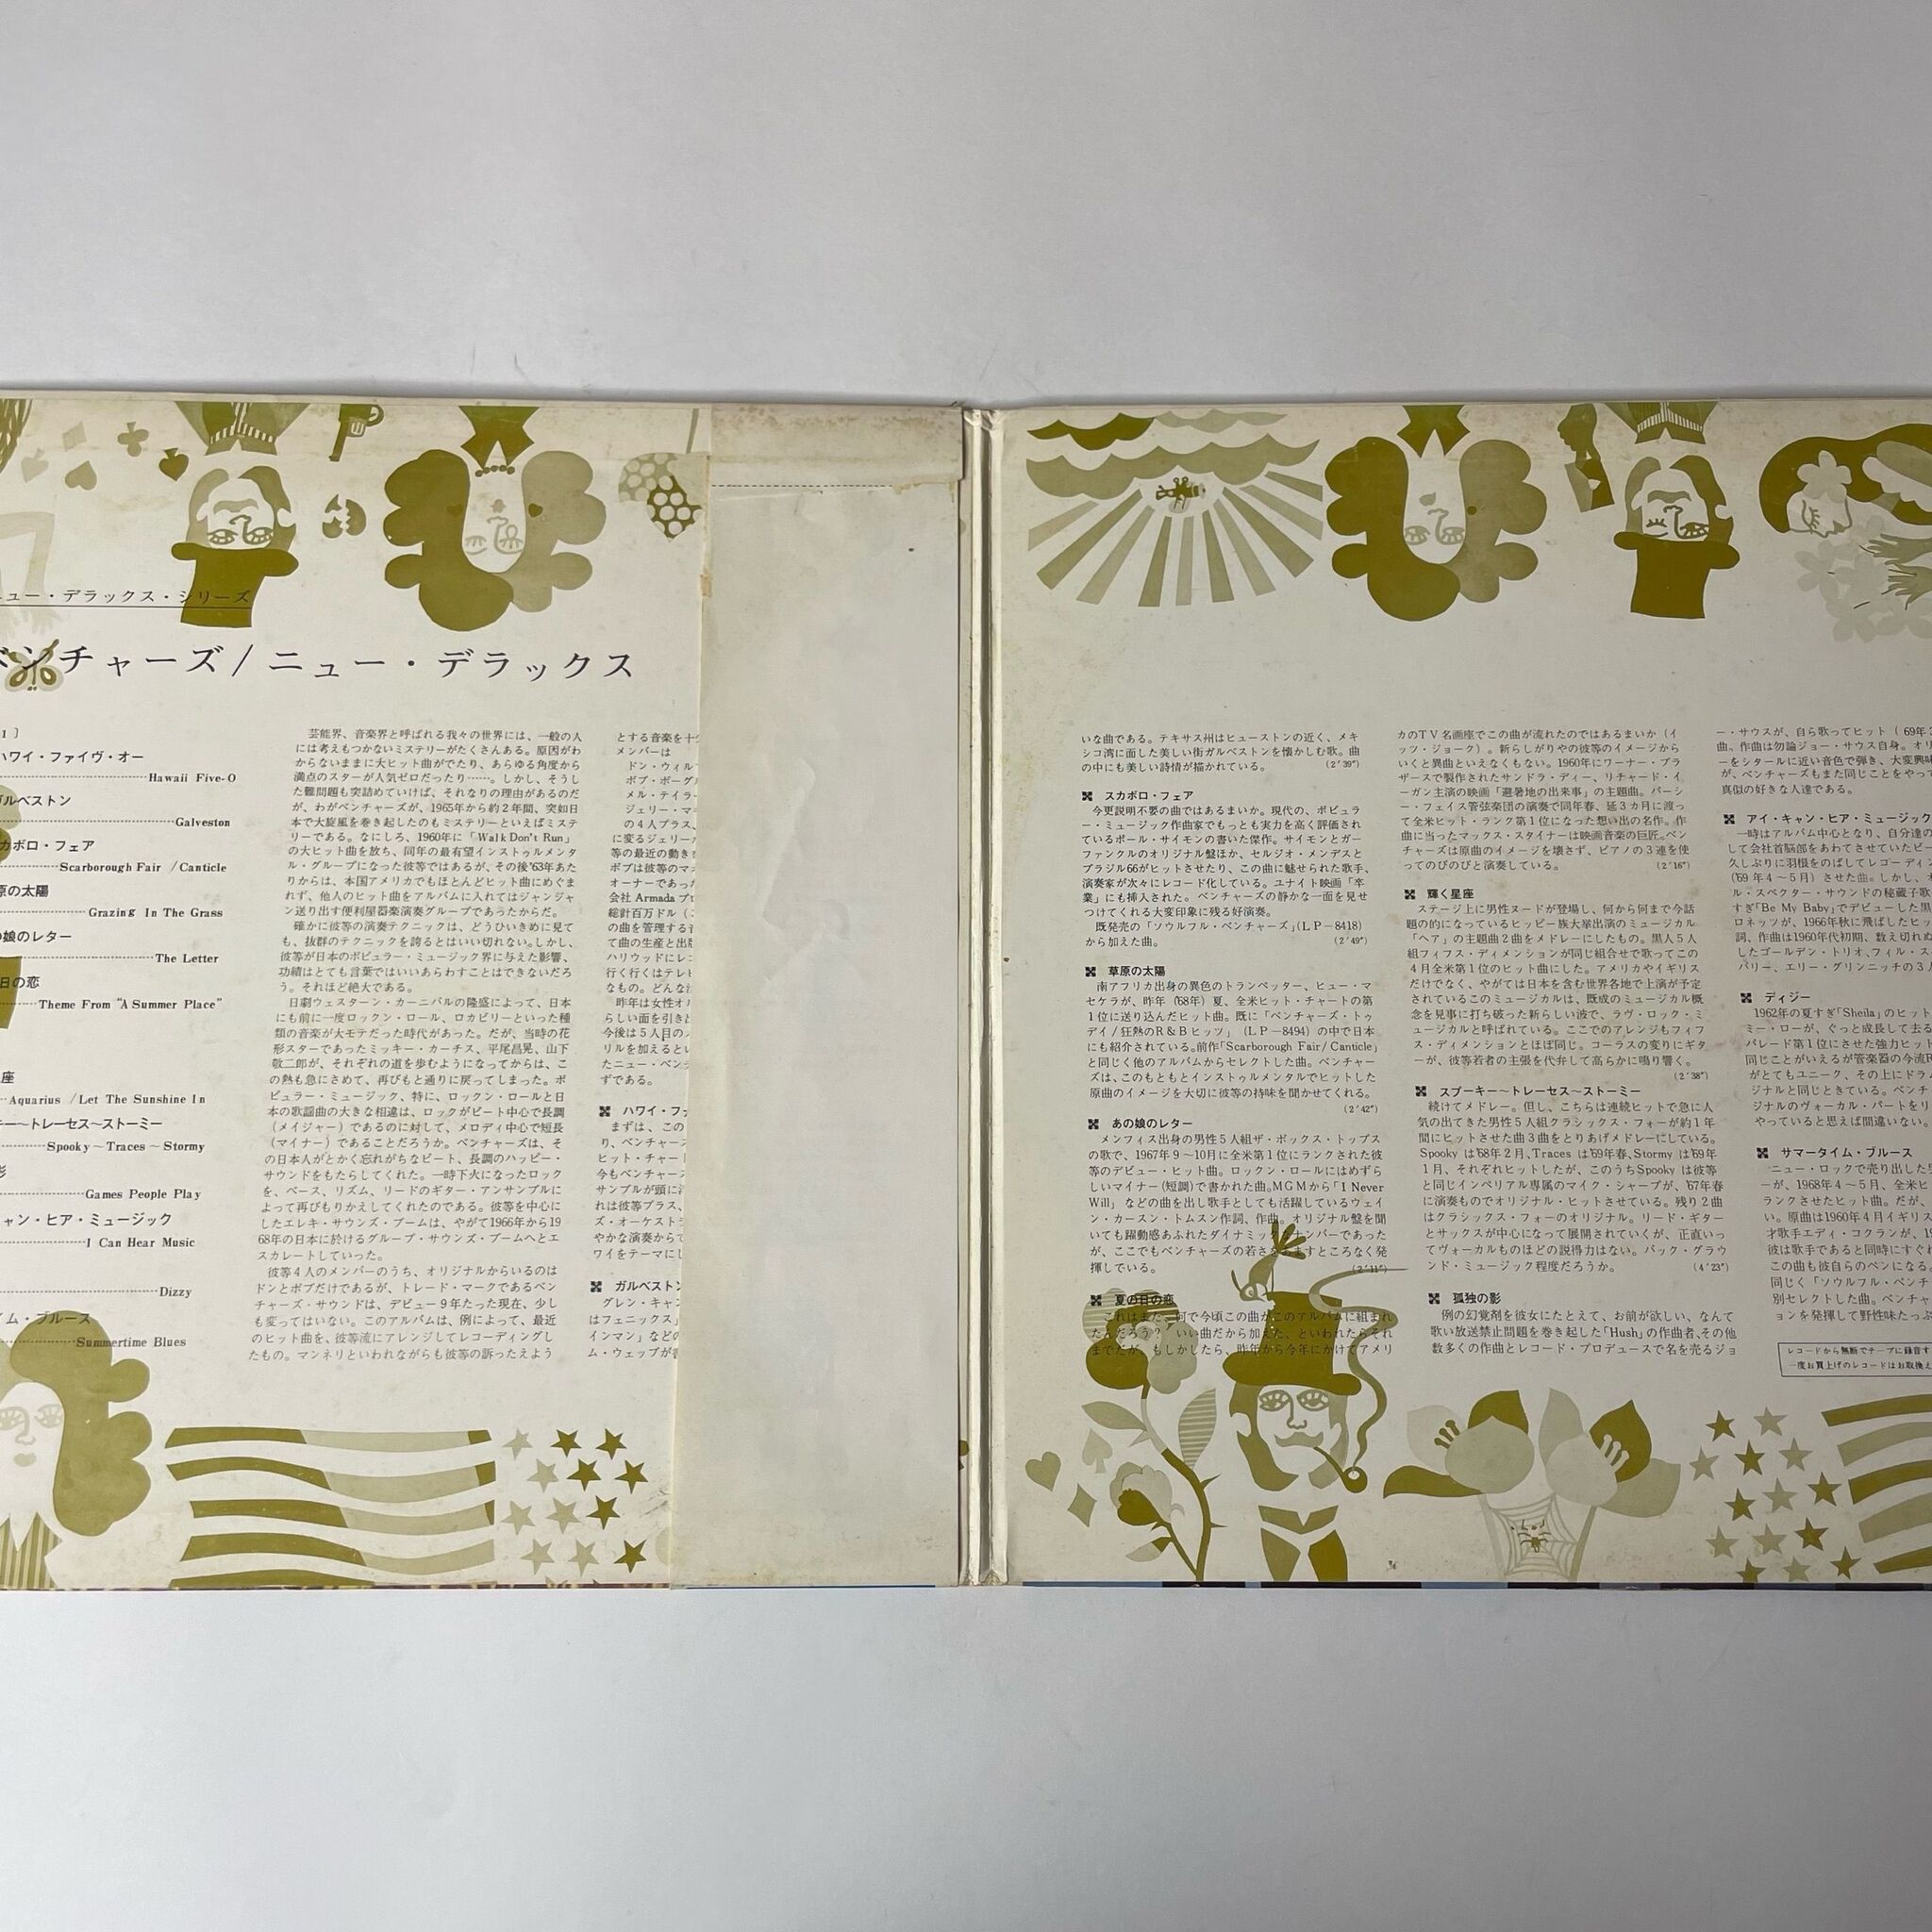 ュー・デラックス・シリーズ
ベンチャーズ/ニュー・デラックス
1 ]
ハワイ・ファイヴ・オー
Hawaii Five-O
ガルベストン
Galveston
カボロ・フェア
Scarborough Fair / Canticle
原の太陽
Grazing In The Grass
の娘のレター
The Letter
日の恋
Theme From “A Summer Place”
座
Aquarius / Let The Sunshine In
キー〜トレーセス〜ストーミー
Spooky ~ Traces ~ Stormy
影
Games People Play
ャン・ヒア・ミュージック
I Can Hear Music
Dizzy
イム・ブルース
Summertime Blues
芸能界、音楽界と呼ばれる我々の世界には、一般の人
には考えもつかないミステリーがたくさんある。原因がわ
からないままに大ヒット曲がでたり、あらゆる角度から
満点のスターが人気ゼロだったり……。しかし、そうし
た難問題も突詰めていけば、それなりの理由があるのだ
が、わがベンチャーズが、1965年から約2年間、突如日
本で大旋風を巻き起したのもミステリーといえばミステ
リーである。なにしろ、1960年に「Walk Don't Run」
の大ヒット曲を放ち、同年の最有望インストゥルメンタ
ル・グループになった彼等ではあるが、その後'63年あた
りからは、本国アメリカでもほとんどヒット曲にめぐま
れず、他人のヒット曲をアルバムに入れてはジャンジャ
ン送り出す便利屋器楽演奏グループであったからだ。
確かに彼等の演奏テクニックは、どうひいきめに見て
も、抜群のテクニックを誇るとはいい切れない。しかし、
彼等が日本のポピュラー・ミュージック界に与えた影響、
功績はとても言葉ではいいあらわすことはできないだろ
う。それほど絶大である。
日劇ウェスターン・カーニバルの隆盛によって、日本
にも前に一度ロックン・ロール、ロカビリーといった種
類の音楽が大モテだった時代があった。だが、当時の花
形スターであったミッキー・カーチス、平尾昌晃、山下
敬二郎が、それぞれの道を歩むようになってからは、こ
の熱も急にさめて、再びもと通りに戻ってしまった。ポ
ピュラー・ミュージック、特に、ロックン・ロールと日
本の歌謡曲の大きな相違は、ロックがビート中心で長調
(メイジャー)であるのに対して、メロディ中心で短長
(マイナー)であることだろうか。ベンチャーズは、そ
の日本人がとかく忘れがちなビート、長調のハッピー・
サウンドをもたらしてくれた。一時下火になったロック
を、ベース、リズム、リードのギター・アンサンブルに
よって再びもりかえしてくれたのである。彼等を中心に
したエレキ・サウンズ・ブームは、やがて1966年から19
68年の日本に於けるグループ・サウンズ・ブームへとエ
スカレートしていった。
彼等4人のメンバーのうち、オリジナルからいるのは
ドンとボブだけであるが、トレード・マークであるベン
チャーズ・サウンドは、デビュー9年たった現在、少し
も変ってはいない。このアルバムは、例によって、最近
のヒット曲を、彼等流にアレンジしてレコーディングし
たもの。マンネリといわれながらも彼等の訴ったえよう
とする音楽を十分
メンバーは
ドン・ウィル
ボブ・ボーグル
メル・テイラー
ジェリー・マギ
の4人プラス、
に変るジェリー
等の最近の動き
ボブは彼等のマネ
オーナーであった
会社 Armada プロ
総計百万ドル(
の曲を管理する音
て曲の生産と出版
ハリウッドにレコ
行く行くはテレビ
なもの。どんな
昨年は女性オル
らしい面を引き出
今後は5人目の
リルを加えるとい
たニュー・ベンチ
ずである。
ハワイ・ファ
まずは、この
り、ベンチャーズ
ヒット・チャー
今もベンチャーズ
サンブルが頭に
れは彼等プラス、
ズ・オーケストラ
やかな演奏からで
ワイをテーマにし
ガルベストン
グレン・キャン
はフェニックス」
インマン」などの
ム・ウェッブが書
いな曲である。テキサス州はヒューストンの近く、メキ
シコ湾に面した美しい街ガルベストンを懐かしむ歌。曲
の中にも美しい詩情が描かれている。 (2′39″)
スカボロ・フェア
今更説明不要の曲ではあるまいか。現代の、ポピュラ
ー・ミュージック作曲家でもっとも実力を高く評価され
ているポール・サイモンの書いた傑作。サイモンとガー
ファンクルのオリジナル盤ほか、セルジオ・メンデスと
ブラジル66がヒットさせたり、この曲に魅せられた歌手、
演奏家が次々にレコード化している。ユナイト映画「卒
業」にも挿入された。ベンチャーズの静かな一面を見せ
つけてくれる大変印象に残る好演奏。
既発売の「ソウルフル・ベンチャーズ」(LP−8418)
から加えた曲。 (2′49″)
草原の太陽
南アフリカ出身の異色のトランペッター、ヒュー・マ
セケラが、昨年('68年)夏、全米ヒット・チャートの第
1位に送り込んだヒット曲。既に「ベンチャーズ・トゥ
デイ/狂熱のR&Bヒッツ」(LP−8494)の中で日本
にも紹介されている。前作「Scarborough Fair / Canticle」
と同じく他のアルバムからセレクトした曲。ベンチャー
ズは、このもともとインストゥルメンタルでヒットした
原曲のイメージを大切に彼等の持味を聞かせてくれる。
(2′42″)
あの娘のレター
メンフィス出身の男性5人組ザ・ボックス・トップス
の歌で、1967年9〜10月に全米第1位にランクされた彼
等のデビュー・ヒット曲。ロックン・ロールにはめずら
しいマイナー(短調)で書かれた曲。MGMから「I Never
Will」などの曲を出し歌手としても活躍しているウェイ
ン・カースン・トムスン作詞、作曲。オリジナル盤を聞
いても躍動感あふれたダイナミックナンバーであった
が、ここでもベンチャーズの若さをあますところなく発
揮している。 (2′11″)
夏の日の恋
これはまた、何で今頃この曲がこのアルバムに組まれ
たんだろう? いい曲だから加えた、といわれたらそれ
までだが、もしかしたら、昨年から今年にかけてアメリ
カのTV名画座でこの曲が流れたのではあるまいか(イ
ッツ・ジョーク)。新らしがりやの彼等のイメージから
いくと異曲といえなくもない。1960年にワーナー・ブラ
ザースで製作されたサンドラ・ディー、リチャード・イ
ーガン主演の映画「避暑地の出来事」の主題曲。パーシ
ー・フェイス管弦楽団の演奏で同年春、延3カ月に渡っ
て全米ヒット・ランク第1位になった想い出の名作。作
曲に当ったマックス・スタイナーは映画音楽の巨匠。ベン
チャーズは原曲のイメージを壊さず、ピアノの3連を使
ってのびのびと演奏している。 (2′16″)
輝く星座
ステージ上に男性ヌードが登場し、何から何まで今話
題の的になっているヒッピー族大挙出演のミュージカル
「ヘア」の主題曲2曲をメドレーにしたもの。黒人5人
組フィフス・ディメンションが同じ組合せで歌ってこの
4月全米第1位のヒット曲にした。アメリカやイギリス
だけでなく、やがては日本を含む世界各地で上演が予定
されているこのミュージカルは、既成のミュージカル概
念を見事に打ち破った新らしい波で、ラヴ・ロック・ミ
ュージカルと呼ばれている。ここでのアレンジもフィフ
ス・ディメンションとほぼ同じ。コーラスの変りにギタ
ーが、彼等若者の主張を代弁して高らかに鳴り響く。
(2′38″)
スプーキー〜トレーセス〜ストーミー
続けてメドレー。但し、こちらは連続ヒットで急に人
気の出てきた男性5人組クラシックス・フォーが約1年
間にヒットさせた曲3曲をとりあげメドレーにしている。
Spooky は'68年2月、Traces は'69年春、Stormy は'69年
1月、それぞれヒットしたが、このうちSpooky は彼等
と同じインペリアル専属のマイク・シャープが、'67年春
に演奏ものでオリジナル・ヒットさせている。残り2曲
はクラシックス・フォーのオリジナル。リード・ギター
とサックスが中心になって展開されていくが、正直いっ
てヴォーカルものほどの説得力はない。バック・グラウ
ンド・ミュージック程度だろうか。 (4′23″)
孤独の影
例の幻覚剤を彼女にたとえて、お前が欲しい、なんて
歌い放送禁止問題を巻き起した「Hush」の作曲者、その他
数多くの作曲とレコード・プロデュースで名を売るジョ
ー・サウスが、自ら歌ってヒット('69年3
曲。作曲は勿論ジョー・サウス自身。オリ
ーをシタールに近い音色で弾き、大変興味
が、ベンチャーズもまた同じことをやって
真似の好きな人達である。
アイ・キャン・ヒア・ミュージック
一時はアルバム中心となり、自分達の
して会社首脳部をあわてさせていたビー
久しぶりに羽根をのばしてレコーディン
('69年4〜5月)させた曲。しかし、オ
ル・スペクター・サウンドの秘蔵子歌
すぎ「Be My Baby」でデビューした黒
ロネッツが、1966年秋に飛ばしたヒッ
詞、作曲は1960年代初期、数え切れぬ
したゴールデン・トリオ、フィル・ス
バリー、エリー・グリンニッチの3人
ディジー
1962年の夏すぎ「Sheila」のヒット
ミー・ローが、ぐっと成長して去る
パレード第1位にさせた強力ヒット
同じことがいえるが管楽器の今流R
がとてもユニーク、その上にドラム
ジナルと同じときている。ベンチ
ジナルのヴォーカル・パートをリ
やっていると思えば間違いない。
サマータイム・ブルース
ニュー・ロックで売り出した男
ーが、1968年4〜5月、全米ヒ
ランクさせたヒット曲。だが、
い。原曲は1960年4月イギリス
才歌手エディ・コクランが、1
彼は歌手であると同時にすぐれ
この曲も彼自らのペンになる。
同じく「ソウルフル・ベンチ
別セレクトした曲。ベンチャ
ョンを発揮して野性味たっぷ
レコードから無断でテープに録音す
一度お買上げのレコードはお取換え